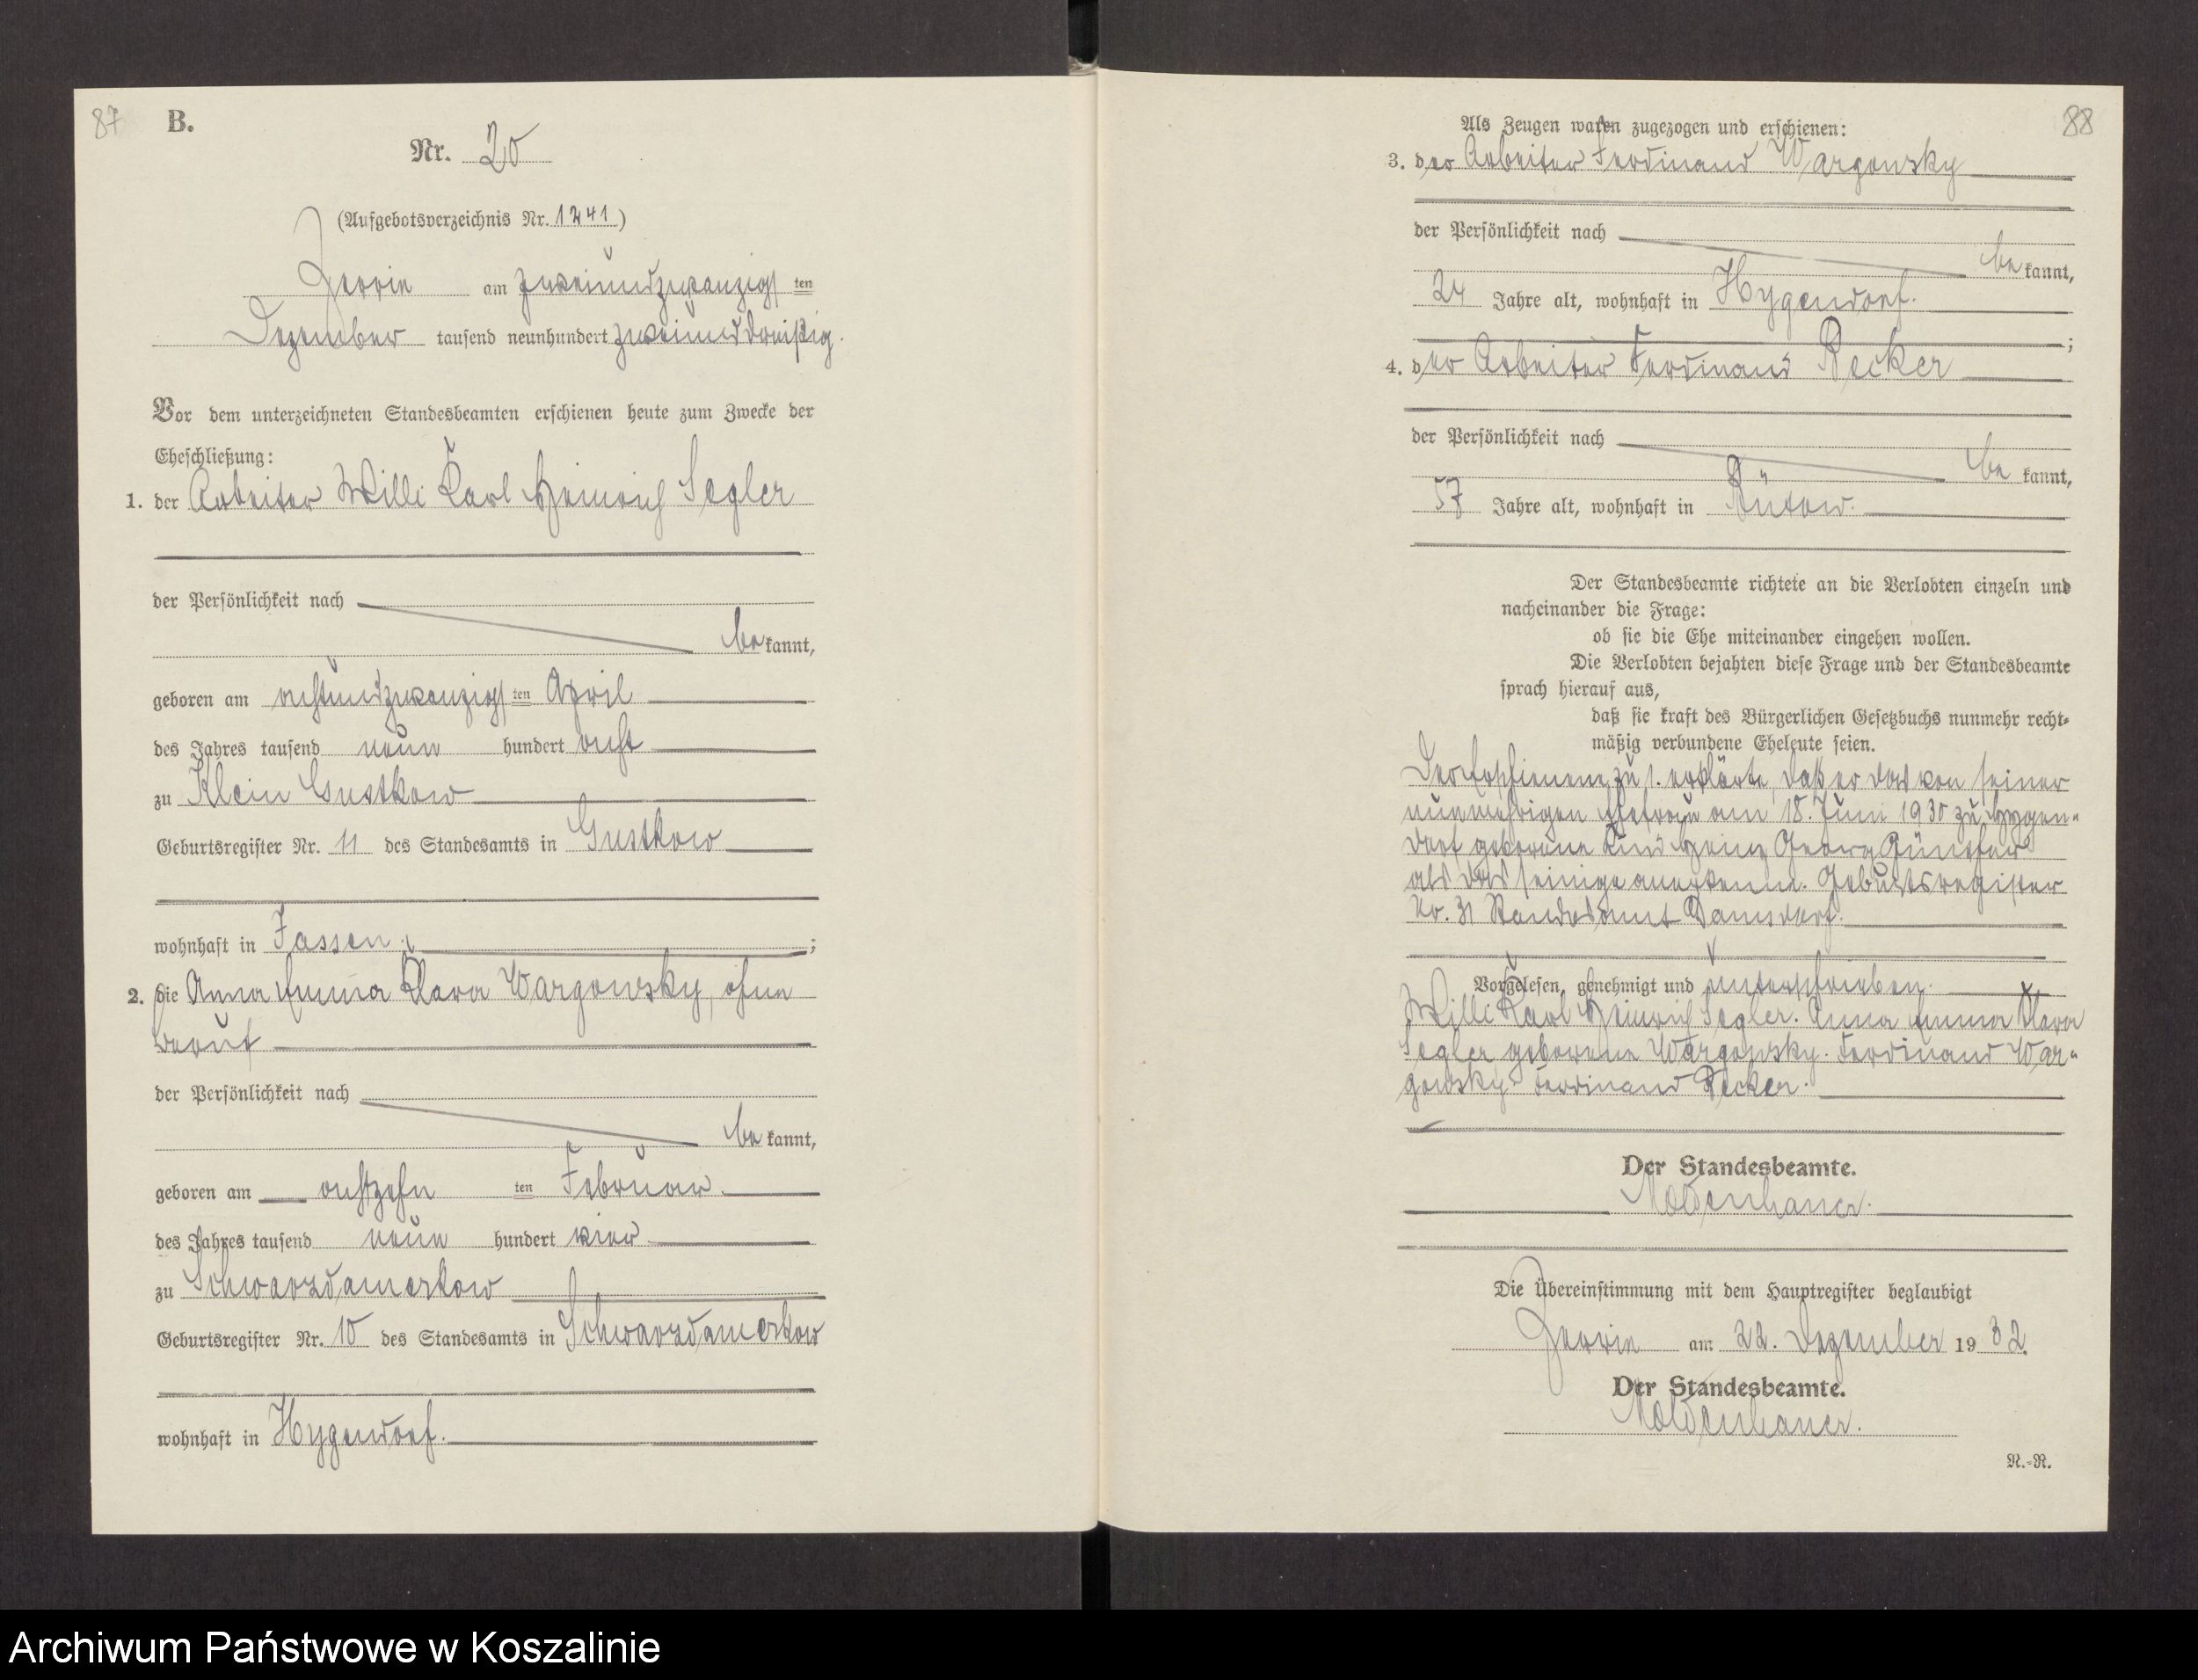 87
B.
Nr. 20
(Aufgebotsverzeichnis Nr. 1241)
Jerrin am zweiundzwanzigsten
Dezember tausend neunhundert zweiunddreißig.
Vor dem unterzeichneten Standesbeamten erschienen heute zum Zwecke der
Eheschließung:
1. der Arbeiter Willi Karl Heinrich Segler
der Persönlichkeit nach
bekannt,
geboren am achtundzwanzigsten April
des Jahres tausend neun hundert acht
zu Klein Gustkow
Geburtsregister Nr. 11 des Standesamts in Gustkow
wohnhaft in Jassen;
2. die Anna Emma Klara Wargowsky, ohne
Beruf
der Persönlichkeit nach
bekannt,
geboren am achtzehnten Februar.
des Jahres tausend neun hundert vier
zu Schwarzdamerkow
Geburtsregister Nr. 10 des Standesamts in Schwarzdamerkow
wohnhaft in Hygendorf.
88
Als Zeugen waren zugezogen und erschienen:
3. der Arbeiter Ferdinand Wargowsky
der Persönlichkeit nach
bekannt,
24 Jahre alt, wohnhaft in Hygendorf.
;
4. der Arbeiter Ferdinand Recker
der Persönlichkeit nach
bekannt,
57 Jahre alt, wohnhaft in Bütow.
Der Standesbeamte richtete an die Verlobten einzeln und
nacheinander die Frage:
ob sie die Ehe miteinander eingehen wollen.
Die Verlobten bejahten diese Frage und der Standesbeamte
sprach hierauf aus,
daß sie kraft des Bürgerlichen Gesetzbuchs nunmehr recht-
mäßig verbundene Eheleute seien.
Der Erschienene zu 1. erklärte, daß er das von seiner
nunmehrigen Ehefrau am 18. Juni 1930 zu Hygen-
dorf geborene Kind Heinz Georg Günther
als das seinige anerkenne. Geburtsregister
Nr. 31 Standesamt Damsdorf.
Vorgelesen, genehmigt und unterschrieben.
Willi Karl Heinrich Segler. Anna Emma Klara
Segler geborene Wargowsky. Ferdinand War-
gowsky. Ferdinand Recker.
Der Standesbeamte.
Moldenhauer.
Die Übereinstimmung mit dem Hauptregister beglaubigt
Jerrin am 22. Dezember 1932.
Der Standesbeamte.
Moldenhauer.
N.-R.
Archiwum Państwowe w Koszalinie